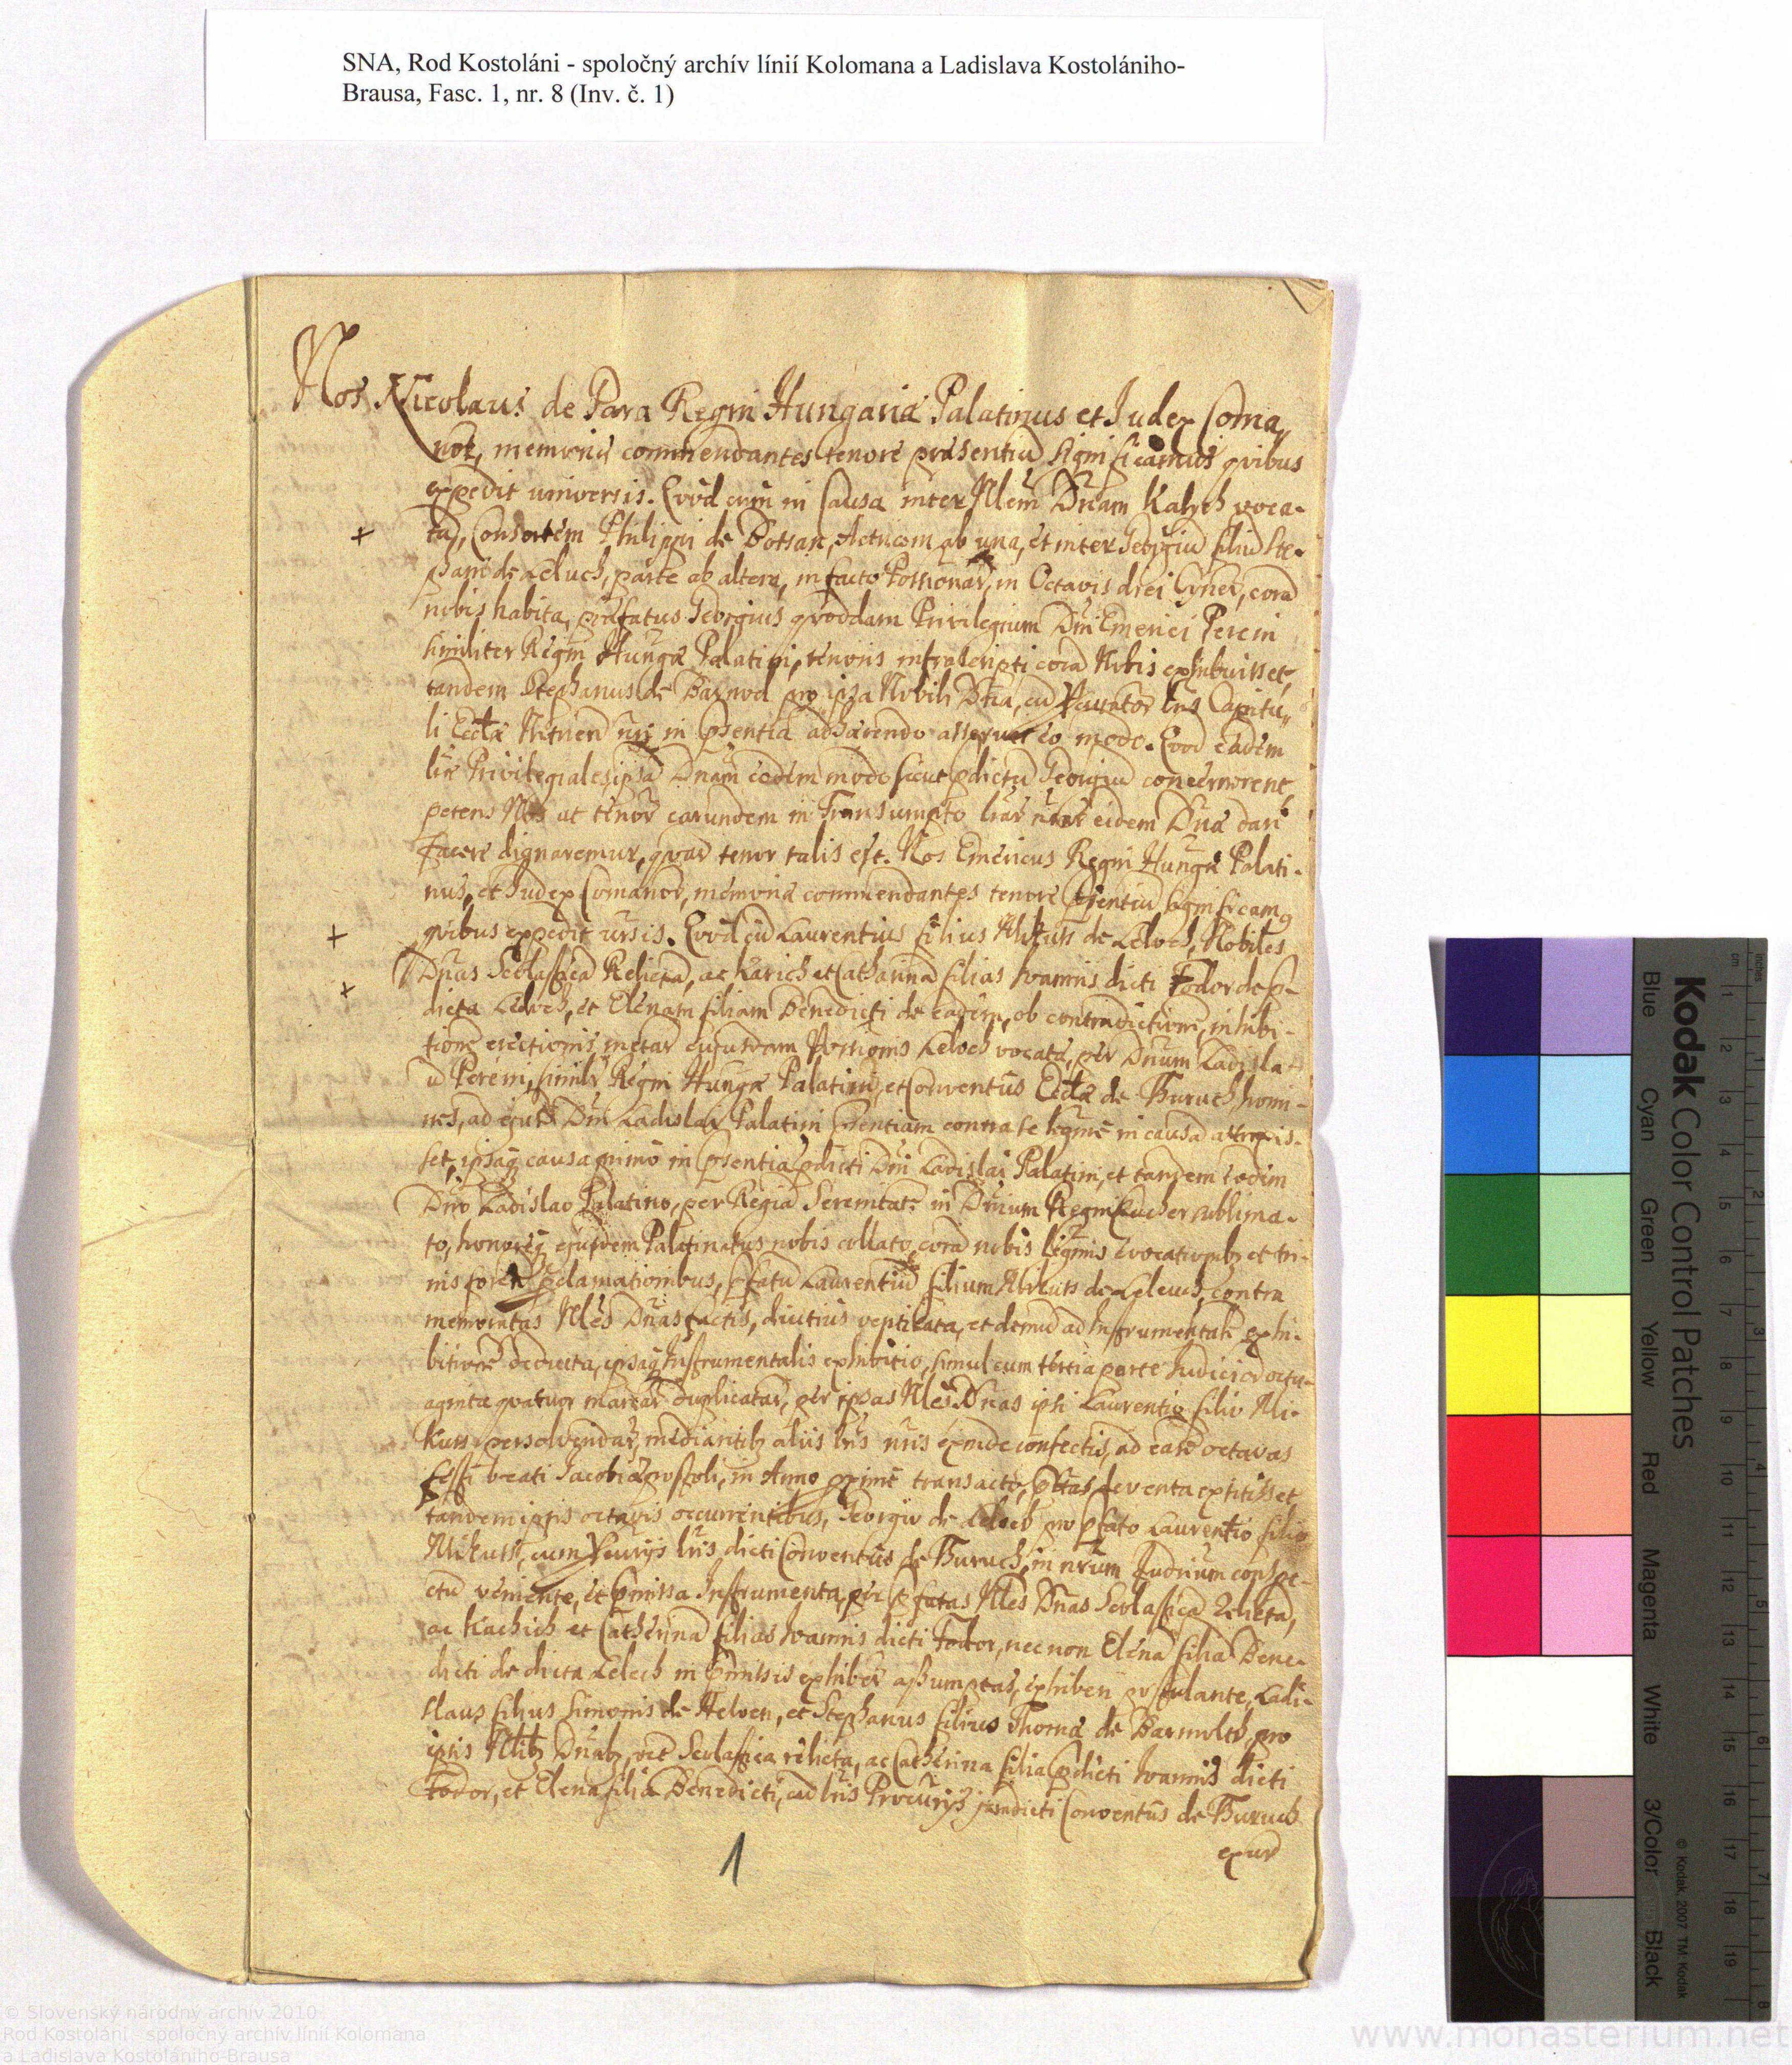 SNA, Rod Kostoláni - spoločný archív línií Kolomana a Ladislava Kostolániho-
Brausa, Fasc. 1, nr. 8 (Inv. č. 1)
Nos Nicolaus de Gara Regni Hungariæ Palatinus et Judex Coma„
nor, memoriæ commendantes tenore præsentiũ significamus quibus
expedit universis. Quod cum in Causa inter Nlem Dnam Katych voca-
tã, Consortem Philippi de Botsan, Actricem ab una, et inter Georgiũ filiũ Ste-
phani de Leluch, parte ab altera, in facto Possionar, in Octavis diei Cyner, corã
nobis habita, præfatus Georgius quoddam Privilegium Dni Emerici Pereni
similiter Regni Hungæ Palatini, tenoris infrascripti corã Nobis exhibuisset,
tandem Stephanus de Baznod pro ipsa Nobili Dna, cũ Pcurator lris Capitu„
li Ecclæ Nitrien nri in Psentia adhærendo asseruit eo modo. Quod eadem
lræ Privilegiales, ipsã Dnam eodem modo sicut pdictũ Georgiũ concernerent,
petens Nos ut tenor earundem in Transumpto lrar nrar eidem Dnæ dari
facere dignaremur, quar tenor talis est. Nos Emericus Regni Hungæ Palati-
nus, et Judex Comanor, memoriæ commendantes tenore Psentiũ significamq
quibus expedit ursis. Quod cũ Laurentius filius Mikuss de Leloch, Nobiles
Dnas Scolasticã Relictã, ac Karich et Catharinã filias Ioannis dicti Fodor de p-
dicta Leloch, et Elenam filiam Benedicti de eadem, ob contradictionẽ, inhibi-
tionẽ erectionis metar cujusdam Possionis Leloch vocatæ, per Dnum Ladisla-
ũ Pereni, similr Regni Hungæ Palatini, et Conventûs Ecclæ de Thuruch homi-
nes, ad ejusd Dni Ladislai Palatini Psentiam contra se legme in causã attraxis-
set, ipsaq causa primo in Psentia pdicti Dni Ladislai Palatini, et tandem eodem
Dno Ladislao Palatino, per Regiã Serenitatẽ in
to, honoreq ejusdem Palatinatus nobis collato, corã nobis legmis evocationibq et tri-
nis foren Pclamationibus, pfatũ Laurentiũ filium Mikuss de Leleuch, contra
memoratas Nles Dnas factis, diutius ventilata, et demũ ad Instrumentalẽ exhi-
bitionẽ deducta, ipsaq Instrumentalis exhibitio, simul cum tertia parte Judicior octu-
aginta quatuor marcar duplicatar, per ipsas Nles Dnas ipsi Laurentio filio Mi-
kuss persolvendar, mediantibq aliis lris nris exinde confectis, ad easd octavas
festi beati Jacobi Apostoli, in Anno proxime transacto, deventa extitisset
tandem ipsis octavis occurrentibus, Georgio de Leloch pro pfato Laurentio filio
Mikuss, cum Pcurijs lris dicti Conventûs de Thuruch, in nrum Judrium conspe-
ctũ veniente, et Pmissa Instrumenta, per pfatas Nles Dnas Scolasticã Relictã,
ac Kachich et Catherinã filias Ioannis dicti Fodor, nec non Elenã filiã Bene-
dicti de dicta Leloch in Pmissis exhiber assumptas, exhiberi postulante, Ladi-
slaus filius Simonis de Helven, et Stephanus filius Thomæ de Barmoth, pro
ipsis Nlibq Dnabq, vide Scolastica relicta, ac Catherina filia Pdicti Ioannis dicti
Fodor, et Elena filia Benedicti, cũ lris Procurijs jamdicti Conventûs de Thuruch
exur
1
Kodak Color Control Patches
Blue Cyan Green Yellow Red Magenta White 3/Color Black
© Kodak, 2007 TM: Kodak
© Slovenský národný archív 2010
Rod Kostoláni - spoločný archív línií Kolomana
a Ladislava Kostolániho-Brausa
www.monasterium.net